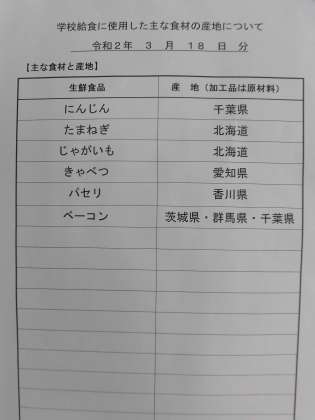 学校給食に使用した主な食材の産地について
令和2年 3 月 18 日 分
【主な食材と産地】
生鮮食品 産 地（加工品は原材料）
にんじん 千葉県
たまねぎ 北海道
じゃがいも 北海道
きゃべつ 愛知県
パセリ 香川県
ベーコン 茨城県・群馬県・千葉県